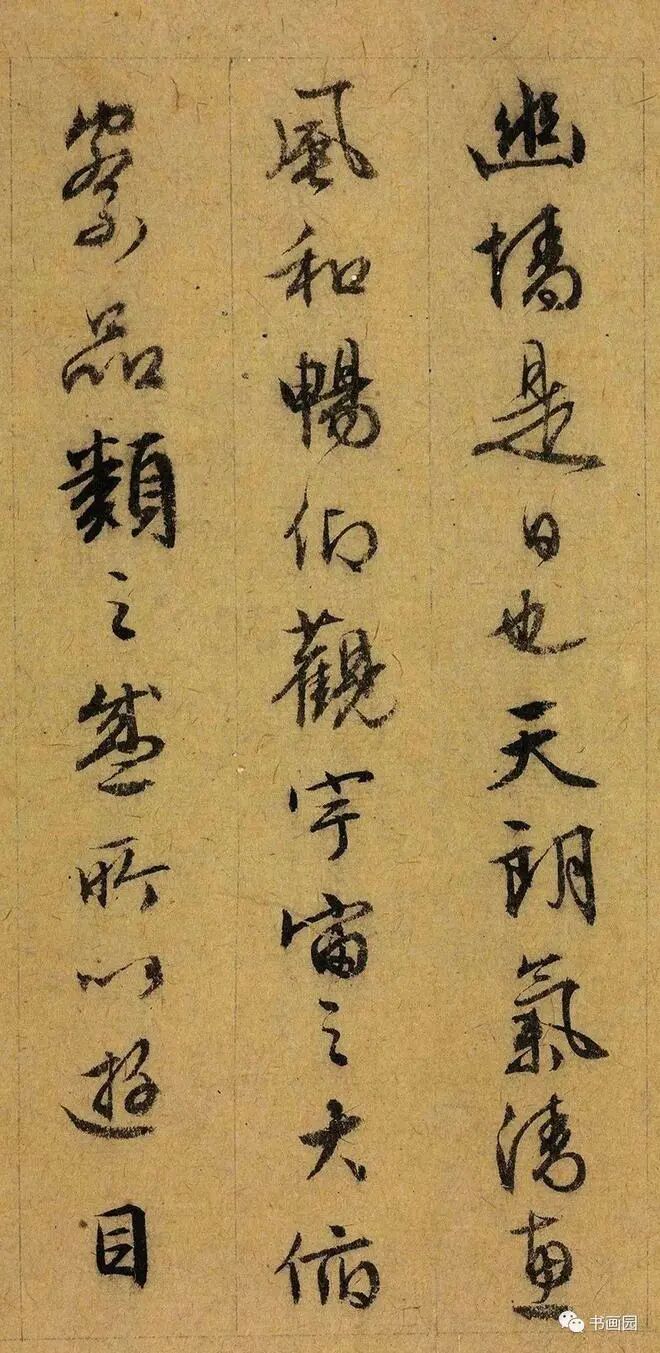 幽情是日也天朗氣清惠
風和暢仰觀宇宙之大俯
察品類之盛所以遊目
书画园